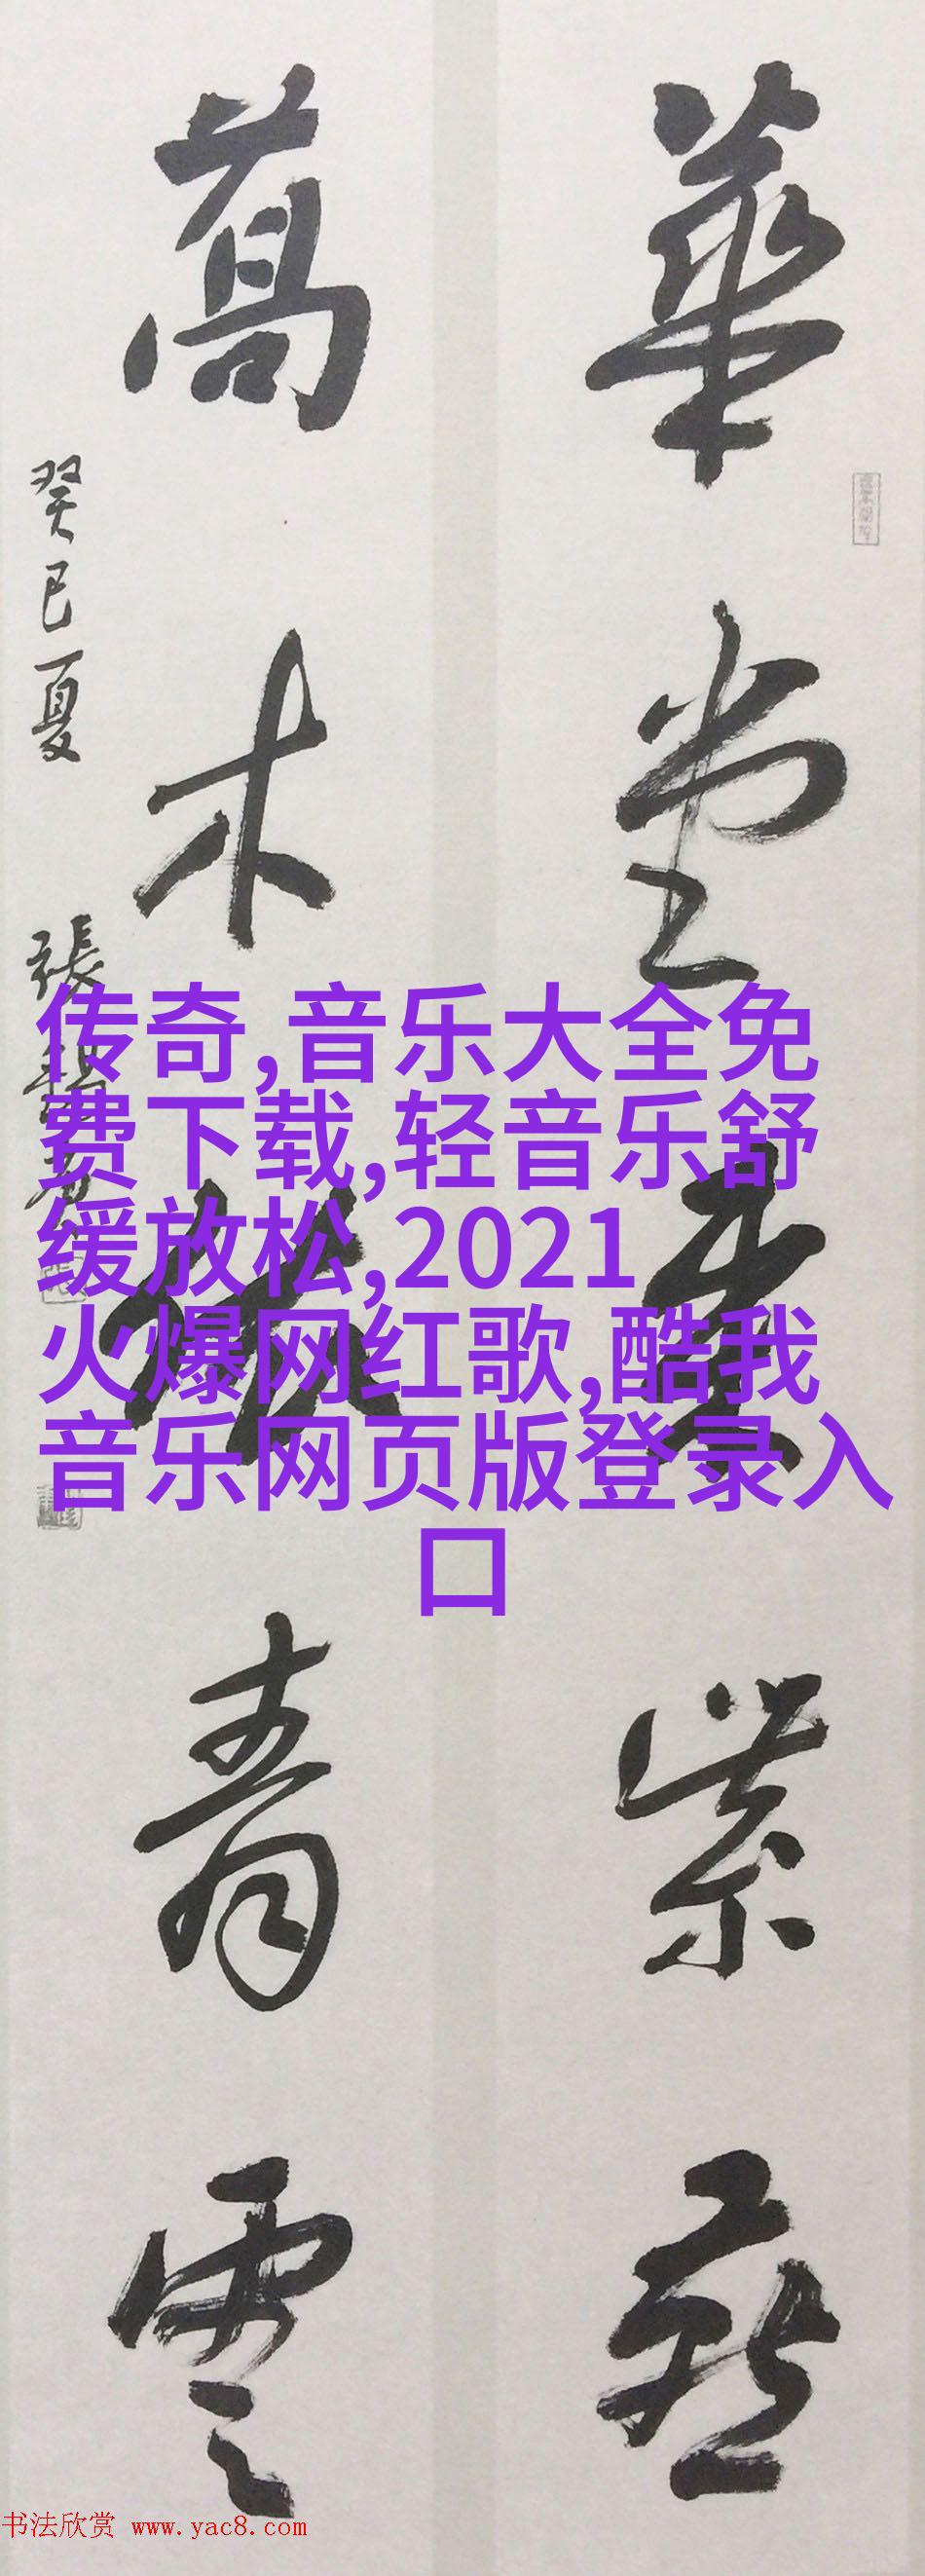 華堂
紫燕
萬木
青雲
癸巳夏
張
传奇,音乐大全免
费下载,轻音乐舒
缓放松,2021
火爆网红歌,酷我
音乐网页版登录入
口
书法欣赏 www.yac8.com